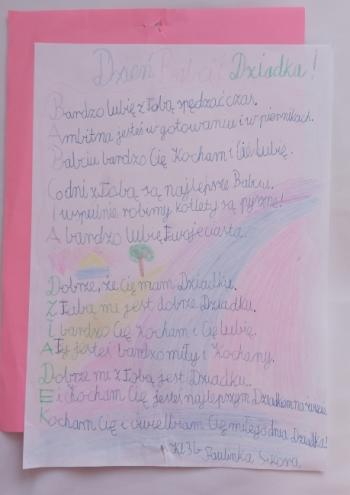 Dzień Babci i Dziadka!
Bardzo lubię z Tobą spędzać czas.
Ambitna jesteś w gotowaniu i w piernikach.
Babciu bardzo Cię Kocham i Cię lubię.
Codni z Tobą są najlepsze Babciu.
I wspulnie robimy kotlety są pyszne!
A bardzo lubię Twoje ciasta.
Dobrze, że Cię mam Dziadku.
Z Tobą mi jest dobrze Dziadku.
I bardzo Cię Kocham i Cię lubię.
A Ty jesteś bardzo miły i Kochany.
Dobrze mi z Tobą jest Dziadku.
E i Kocham Cię jesteś najlepszym Dziadkiem na świecie.
Kocham Cię i uwielbiam Cię miłego dnia Dziadka!
Kl 3b
Paulinka Sikora